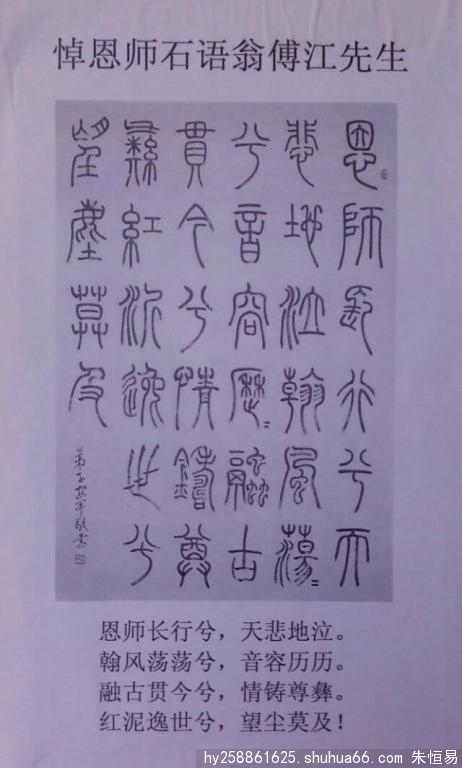 悼恩师石语翁傅江先生
恩師長行兮天
悲地泣翰風蕩〻
兮音容歷〻融古
貫今兮情鑄尊
彝紅泥逸世兮
望塵莫及
弟子敬書
恩师长行兮，天悲地泣。
翰风荡荡兮，音容历历。
融古贯今兮，情铸尊彝。
红泥逸世兮，望尘莫及！
hy258861625.shuhua66.com 朱恒易